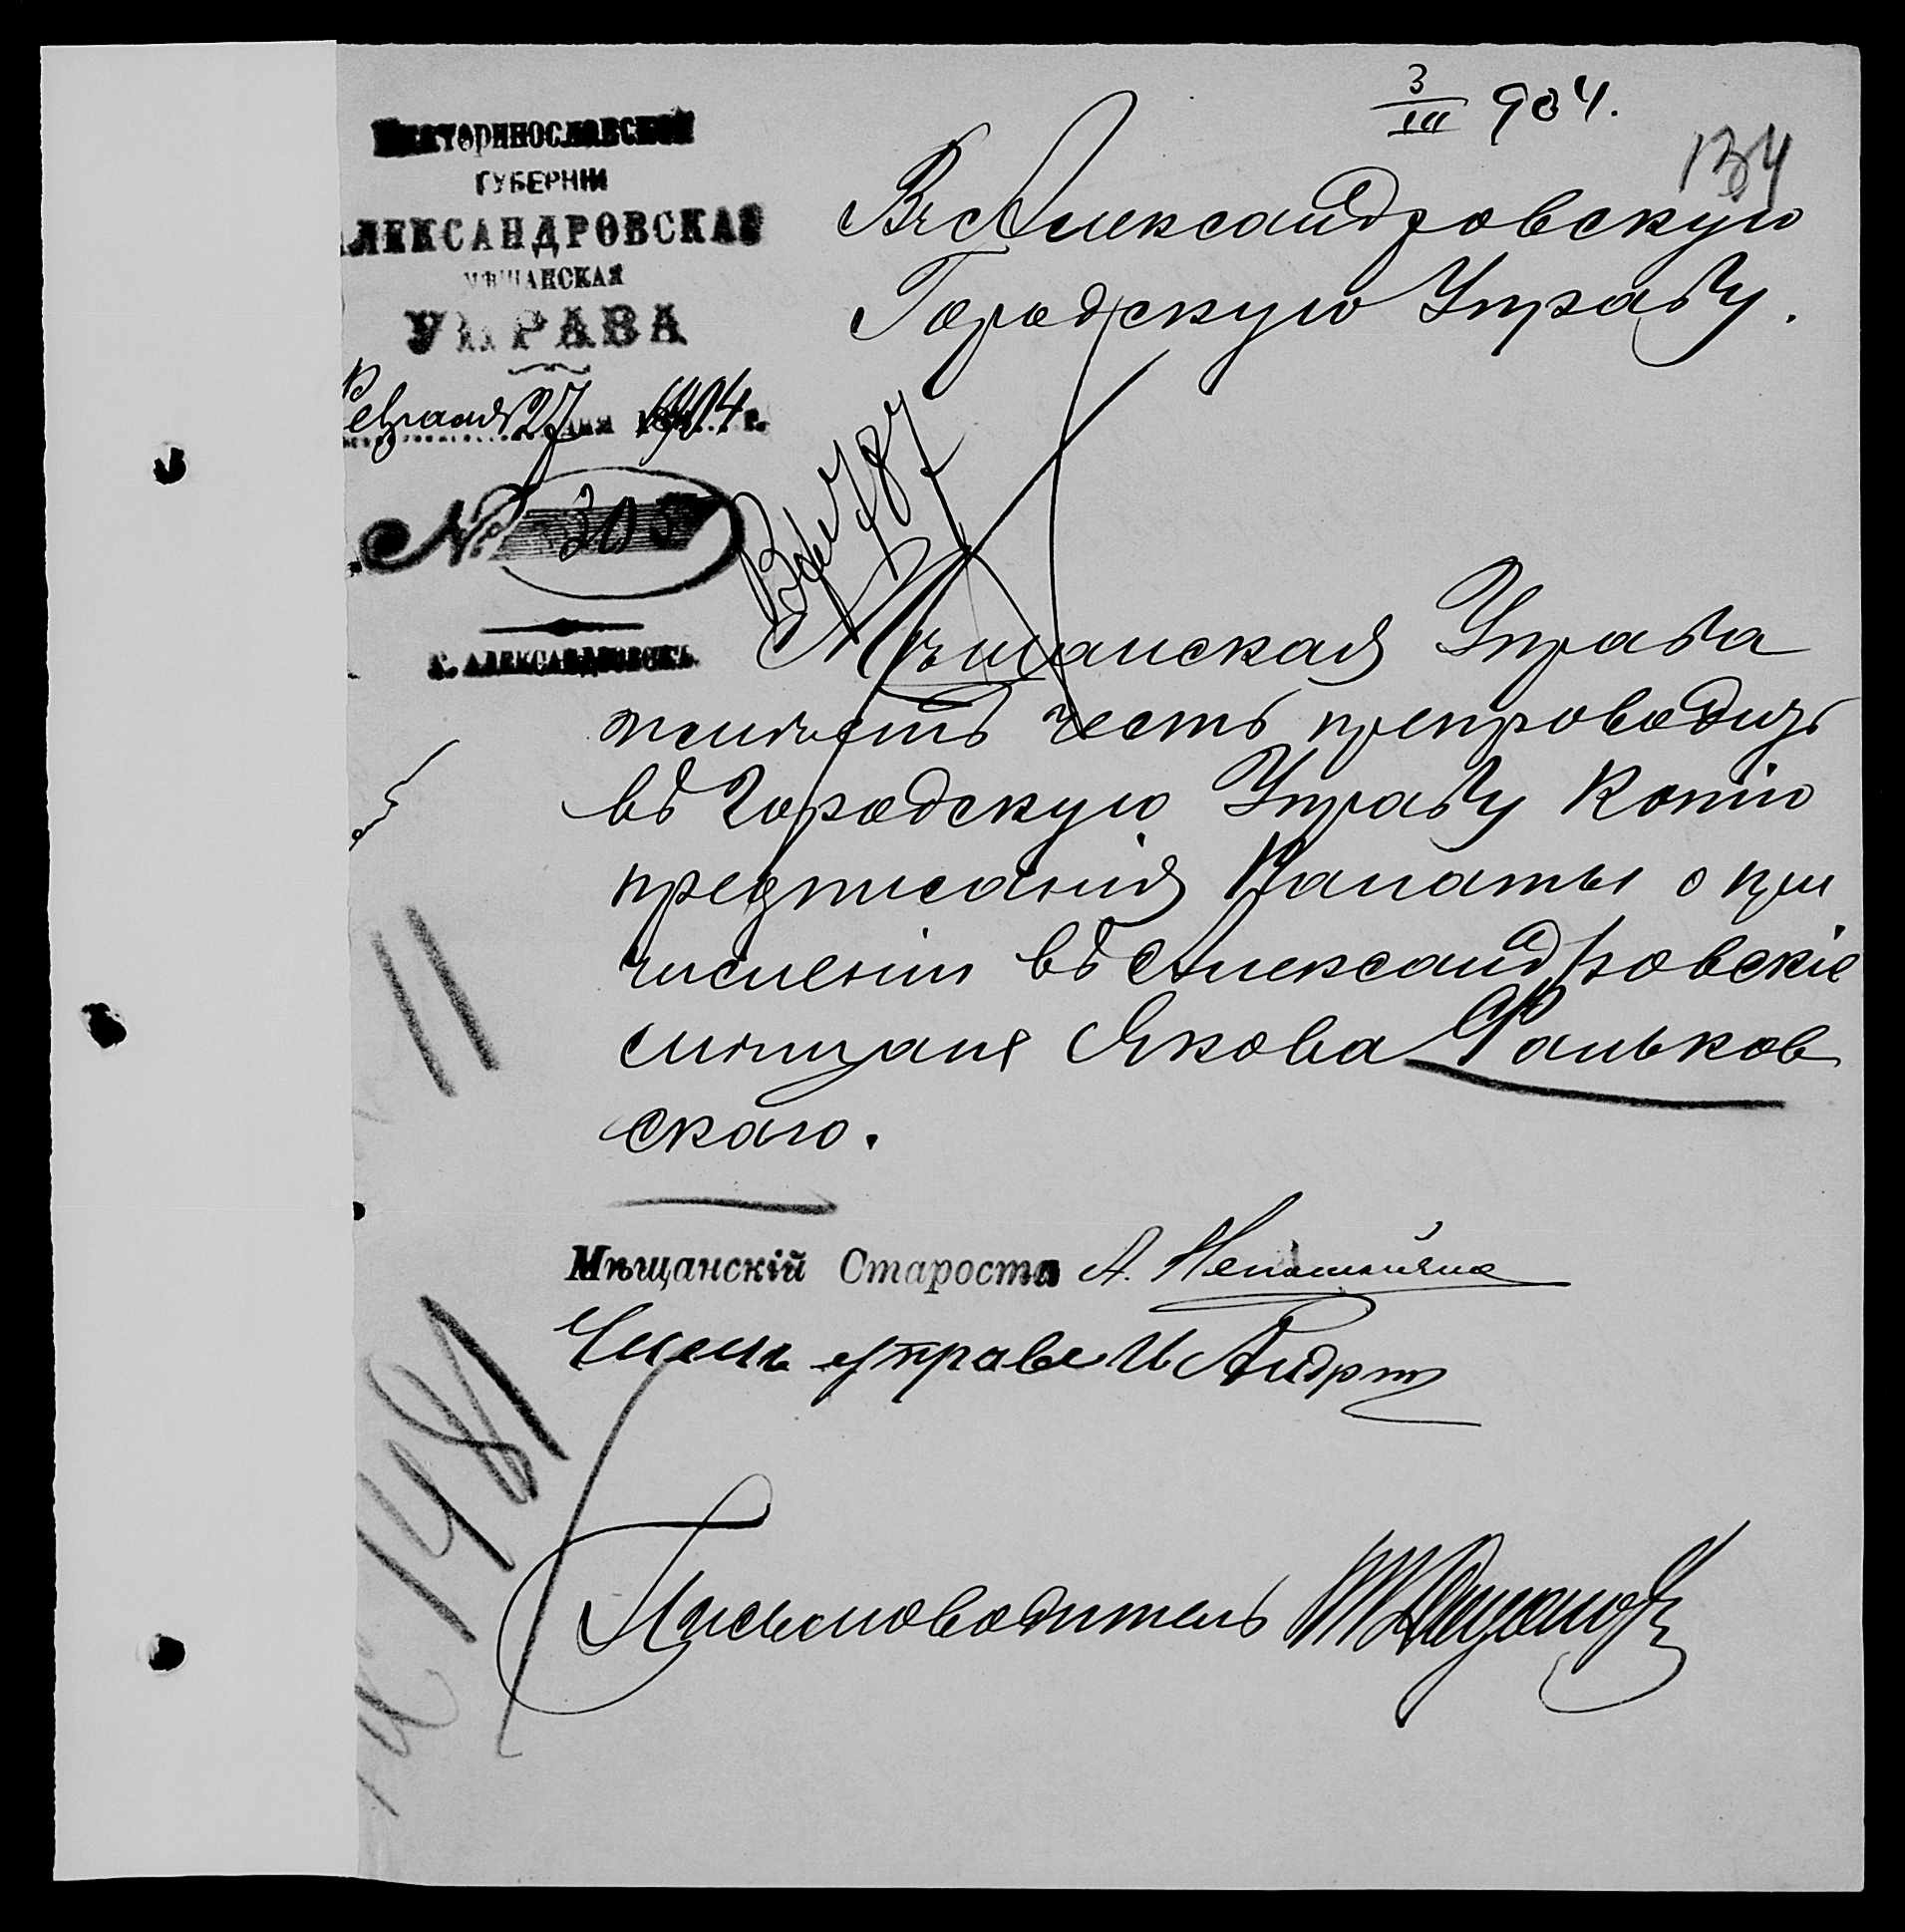 3/III 904.
134
Екатеринославской
ГУБЕРНІИ
АЛЕКСАНДРОВСКАЯ
МѢЩАНСКАЯ
УПРАВА
Февраля 27 дня 1904 г.
№ 305
г. АЛЕКСАНДРОВСКЪ.
Въ Александровскую
Городскую Управу.
787
Мѣщанская Управа
имѣетъ честь препроводить
въ Городскую Управу копію
предписанія Палаты о при
численіи въ Александровскіе
мѣщане Якова Фальков
скаго.
Мѣщанскій Староста А.
Членъ управы И
Письмоводитель
1481